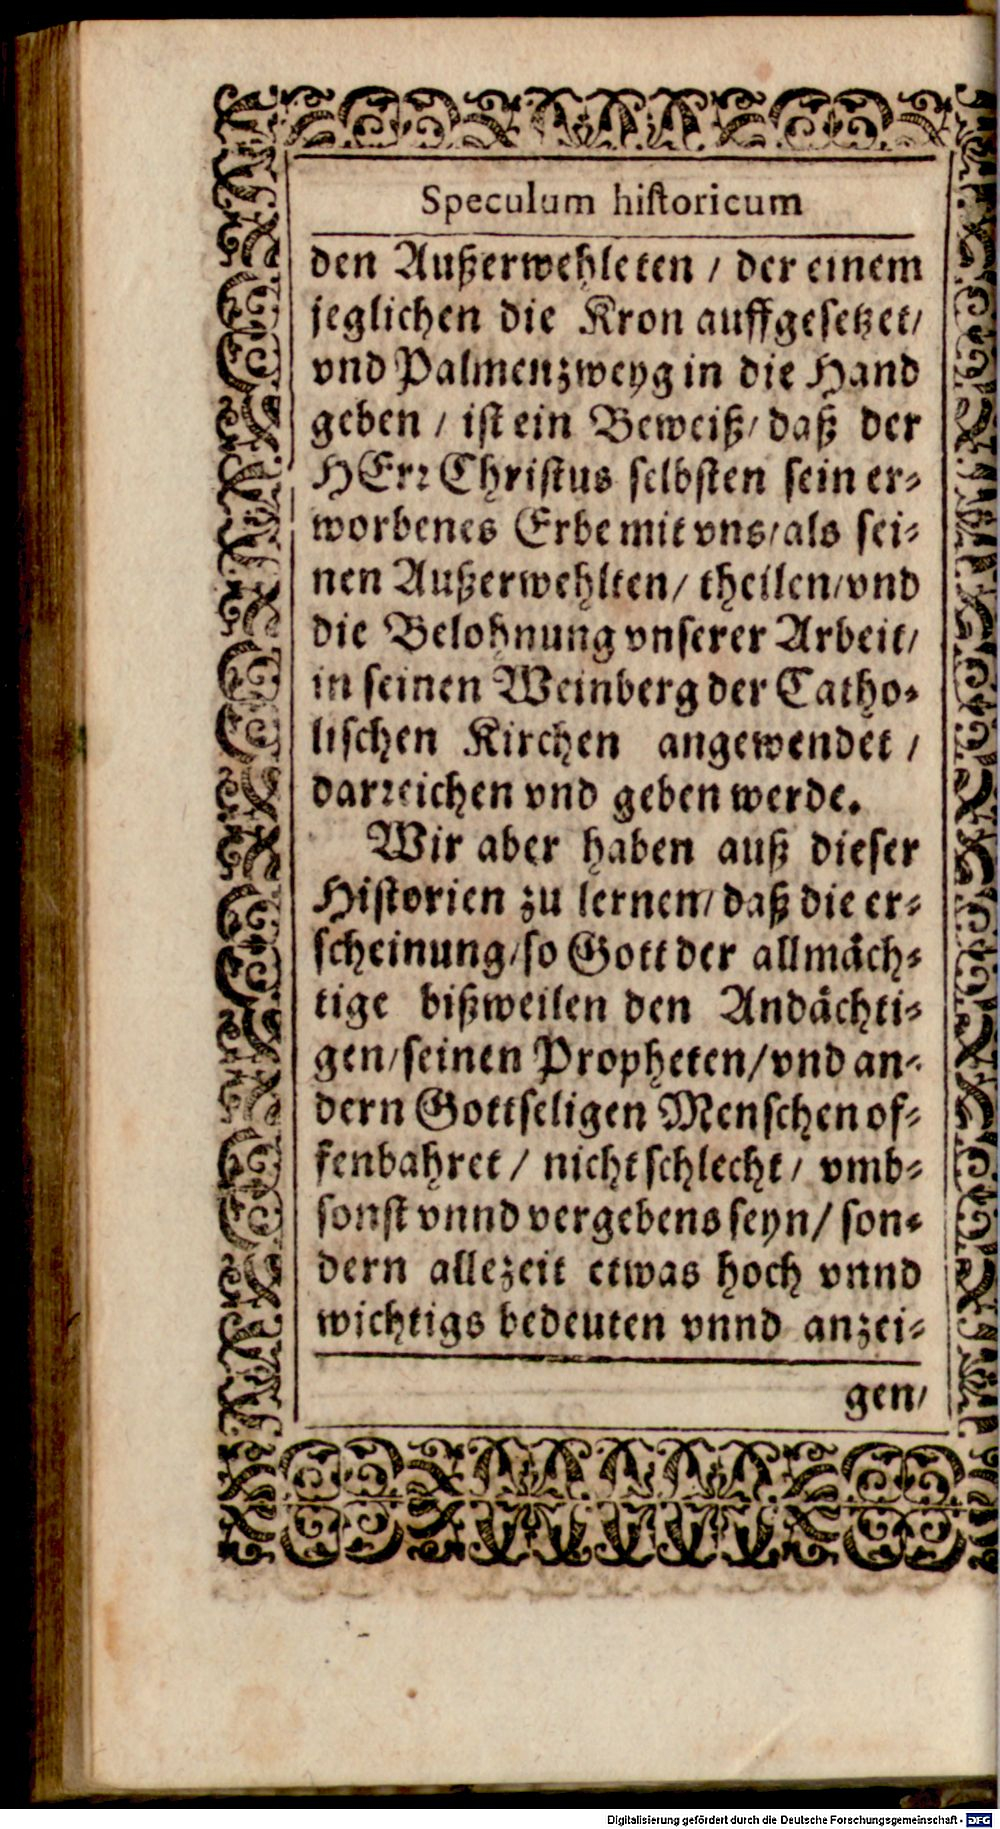 Speculum historicum
den Außerwehleten / der einem
jeglichen die Kron auffgesetzet/
vnd Palmenzweyg in die Hand
geben / ist ein Beweiß/ daß der
HErr Christus selbsten sein er-
worbenes Erbe mit vns/als sei-
nen Außerwehlten/ theilen/vnd
die Belohnung vnserer Arbeit/
in seinen Weinberg der Catho-
lischen Kirchen angewendet /
darreichen vnd geben werde.
Wir aber haben auß dieser
Historien zu lernen/daß die er-
scheinung/so Gott der allmäch-
tige bißweilen den Andächti-
gen/seinen Propheten/vnd an-
dern Gottseligen Menschen of-
fenbahret / nicht schlecht/ vmb-
sonst vnnd vergebens seyn/ son-
dern allezeit etwas hoch vnnd
wichtigs bedeuten vnnd anzei-
gen/
Digitalisierung gefördert durch die Deutsche Forschungsgemeinschaft - DFG